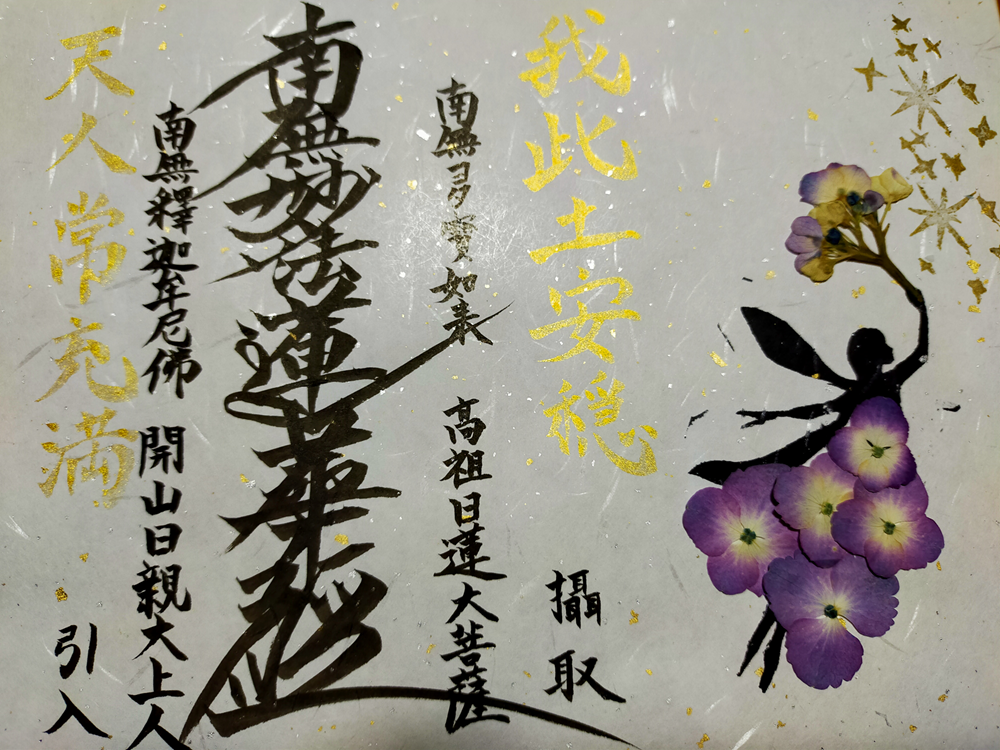 我此土安穏
攝取
南無多寳如来
高祖日蓮大菩薩
南無妙法蓮華経
南無釋迦牟尼佛
開山日親大上人
天人常充満
引入